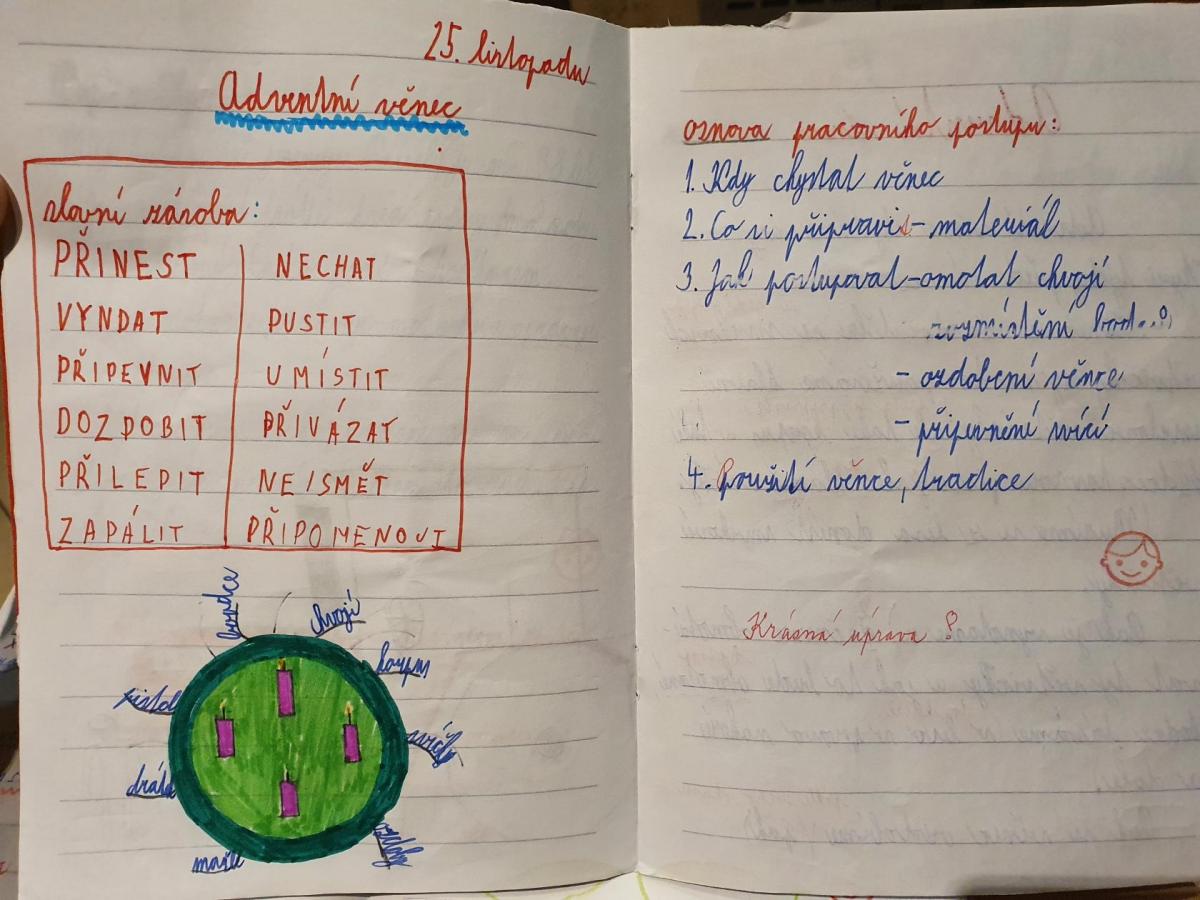 25. listopadu
Adventní věnec
slovní zásoba:
PŘINEST NECHAT
VYNDAT PUSTIT
PŘIPEVNIT UMÍSTIT
DOZDOBIT PŘIVÁZAT
PŘILEPIT NEJSMĚT
ZAPÁLIT PŘIPOMENOUT
bodce
chvojí
korpus
pistol
svíčky
drátek
ozdoby
mašle
osnova pracovního postupu:
1. Kdy chystat věnec
2. Co si připravis - materiál
3. Jak postupovat - omotat chvojí
rozmístění bod...
- ozdobení věnce
- připevnění svící
4. Použití věnce, tradice
Krásná úprava !